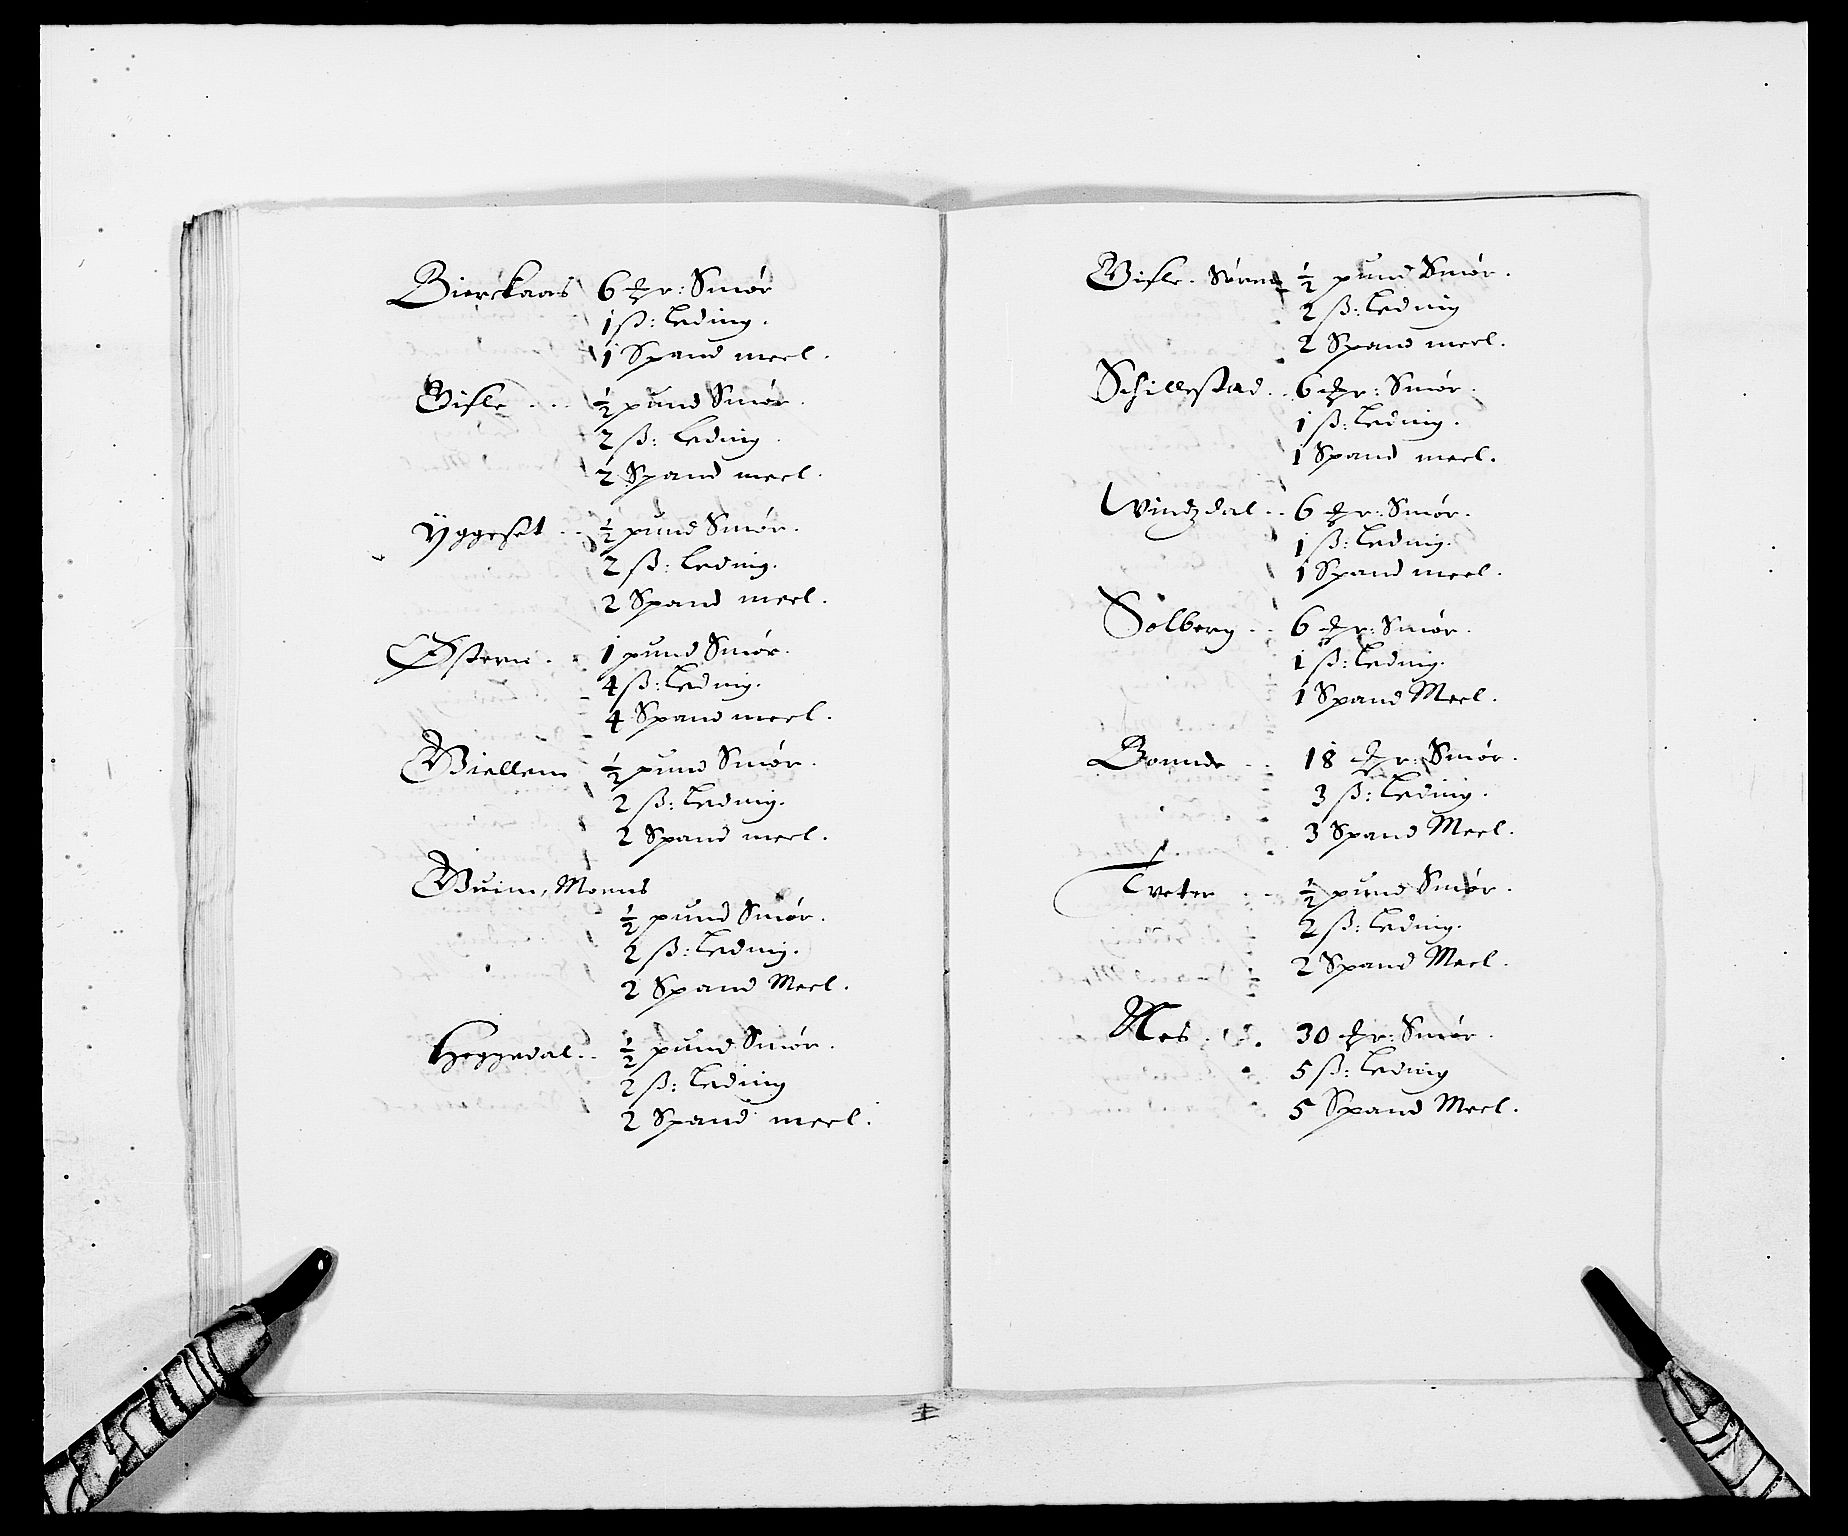 Bierckaas 6 mr: Smór
1 ß: Leding.
1 Spand meel.
Gisle ... ½ pund Smór.
2 ß: Leding.
2 Spand meel.
Ÿggeset .. ½ pund Smór.
2 ß: Leding.
2 Spand meel.
Østern . . 1 pund Smór.
4 ß: Leding.
4 Spand meel.
Giellem ½ pund Smór.
2 ß: Leding.
2 Spand meel.
Guim, Moens
½ pund Smór.
2 ß: Leding.
2 Spand Meel.
Heggedal .. ½ pund Smór.
2 ß: Leding
2 Spand meel.
Gisle. ½ pund Smór.
2 ß: Leding
2 Spand meel.
Schillestad .. 6 mr: Smór.
1 ß: Leding.
1 Spand meel.
Windzdal .. 6 mr: Smór.
1 ß: Leding.
1 Spand meel.
Solberg .. 6 mr: Smór.
1 ß: Leding.
1 Spand Meel.
Bonnde .. 18 mr: Smór.
3 ß: Leding.
3 Spand Meel.
Tveter . . ½ pund Smór.
2 ß: Leding.
2 Spand Meel.
Nes . . . 30 mr: Smór.
5 ß: Leding
5 Spand Meel.